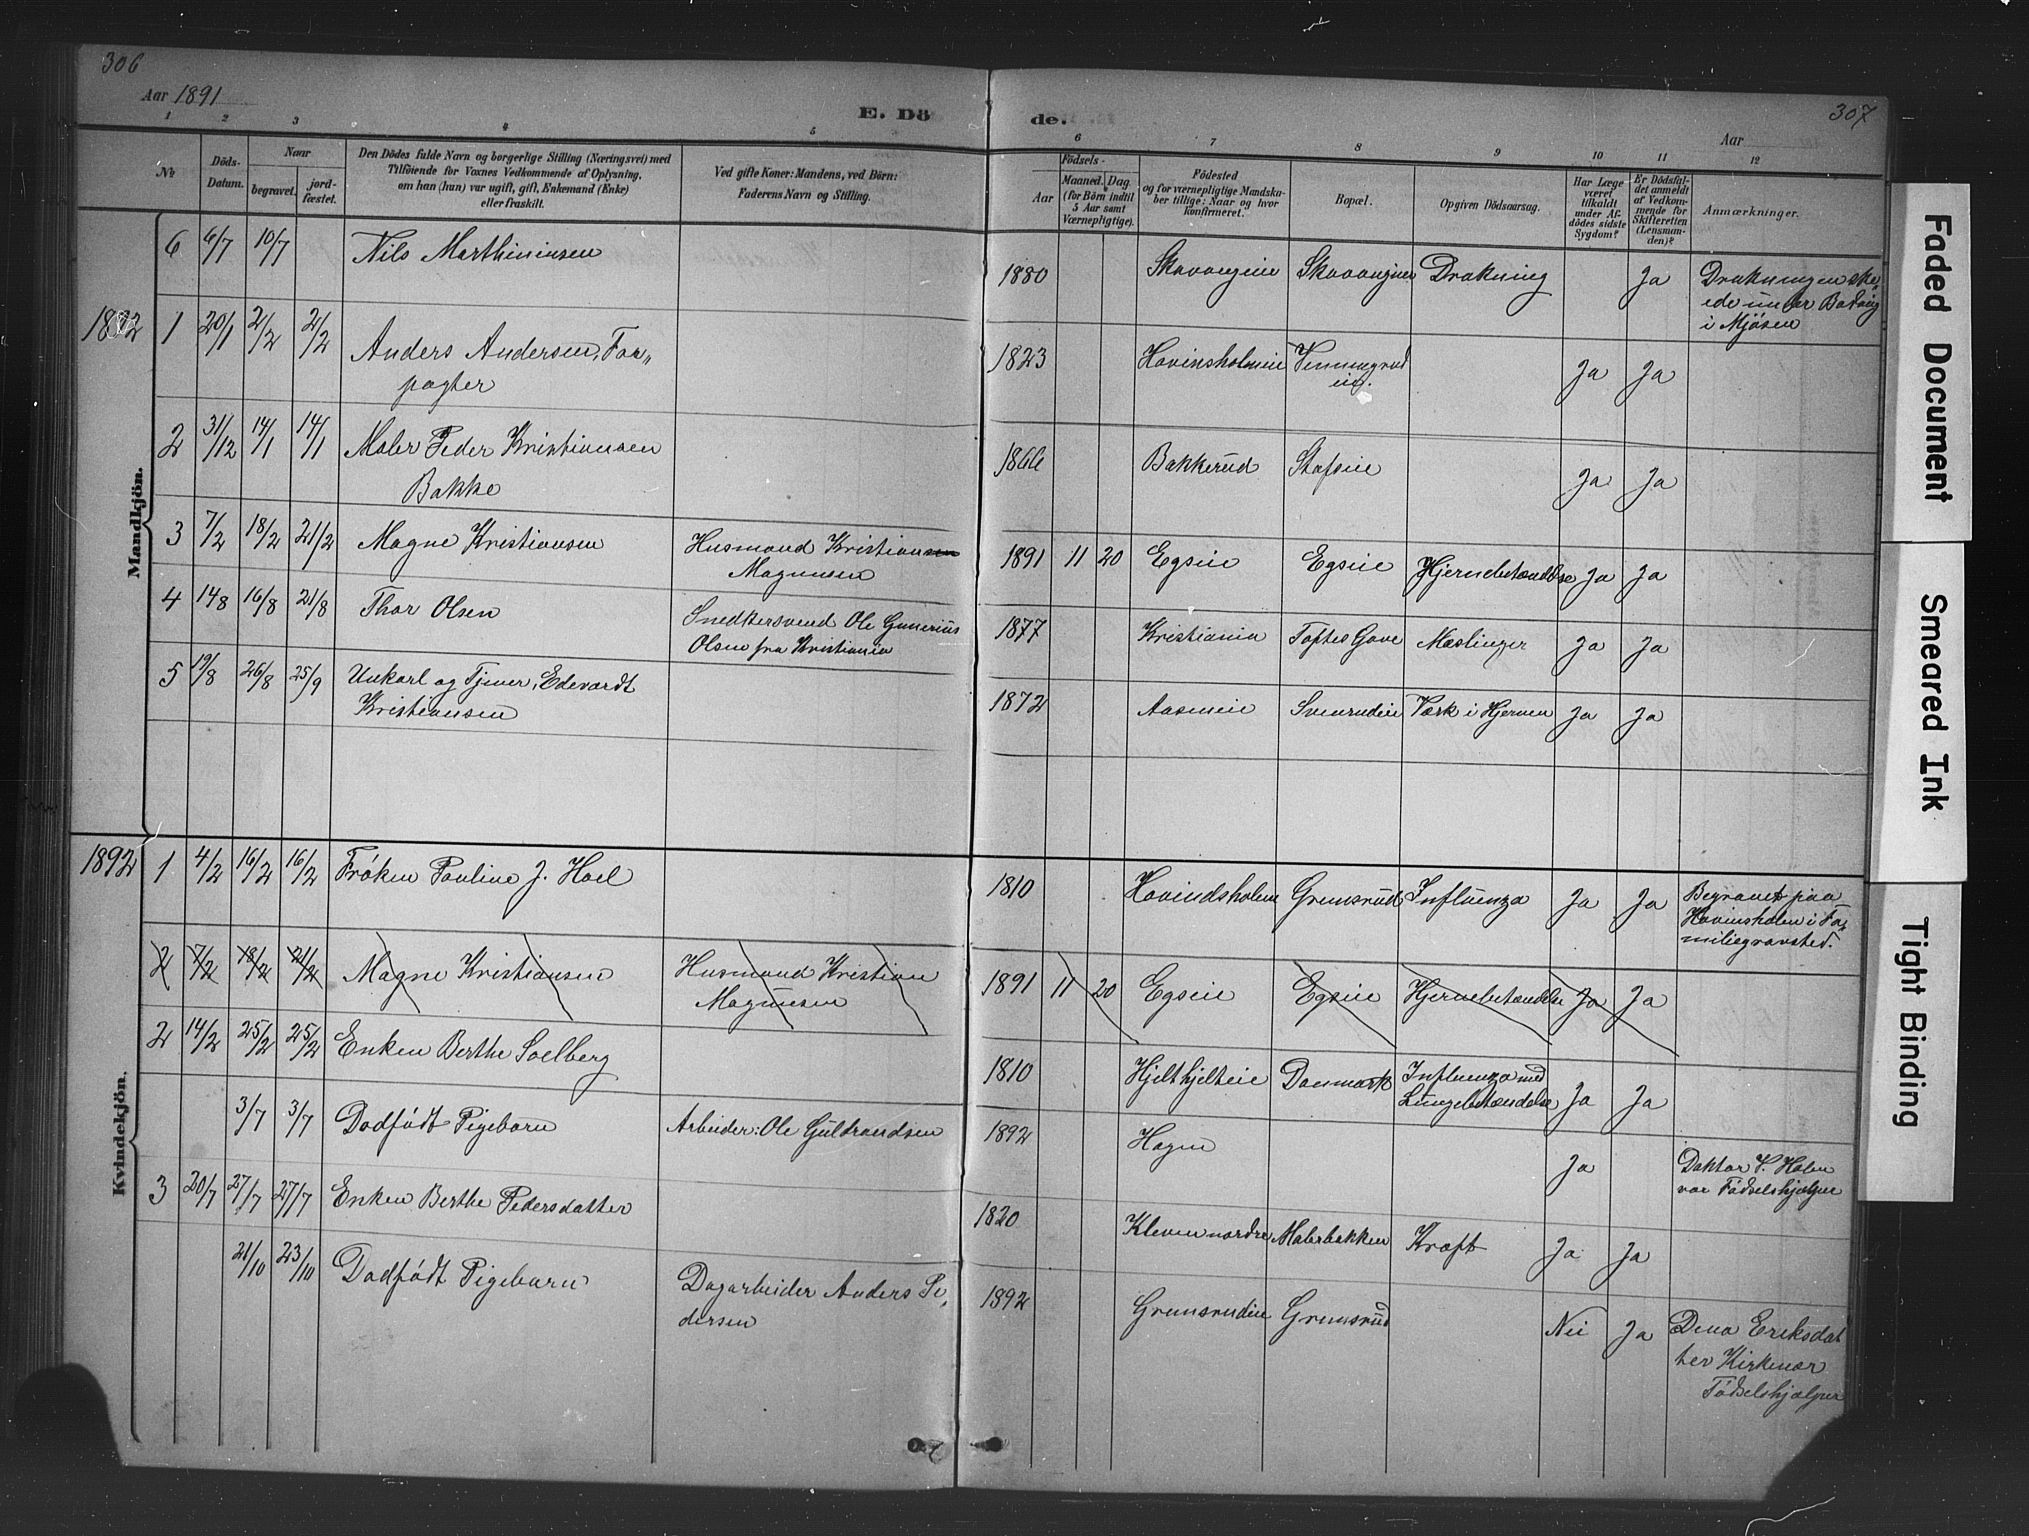 306
Aar 1891
E. Dö
de.
307
Aar
1
2
3
4
5
6
7
8
9
10
11
12
No
Döds-
Datum.
Naar
begravet.
jord-
fæstet.
Den Dödes fulde Navn og borgerlige Stilling (Næringsvei) med
Tilföiende for Voxnes Vedkommende af Oplysning,
om han (hun) var ugift, gift, Enkemand (Enke)
eller fraskilt.
Ved gifte Koner: Mandens, ved Börn:
Faderens Navn og Stilling.
Födsels-
Aar
Maaned. Dag.
(for Börn indtil
5 Aar samt
Værnepligtige).
Födested
og for værnepligtige Mandska-
ber tillige: Naar og hvor
konfirmeret.
Bopæl.
Opgiven Dödsaarsag.
Har Læge
været
tilkaldt
under Af-
dödes sidste
Sygdom?
Er Dödsfal-
det anmeldt
af Vedkom-
mende for
Skifteretten
(Lensman-
den)?
Anmærkninger.
Mandkjön.
6 6/7 10/7 Nils Marthiniusen 1880 Skavangeie Skavangeie Drukning Ja Drukningen ske-
ede under Badning
i Mjösen
1892 1 20/1 2/2 2/2 Anders Andersen, For-
pagter 1823 Hovinsholmeie Vemmegrud
eie. Ja Ja
2 31/12 14/1 14/1 Maler Peder Kristiansen
Bakke 1866 Bakkerud Stafseie Ja Ja
3 7/2 18/2 21/2 Magne Kristiansen Husmand Kristiansen
Magnusen 1891 11 20 Egseie Egseie Hjernebetændelse Ja Ja
4 14/8 16/8 21/8 Thor Olsen Snedkersvend Ole Gunerius
Olsen fra Kristiania 1877 Kristiania Toftes Gave Mæslinger Ja Ja
5 19/8 26/8 25/9 Unkarl og Tjener, Edevardt
Kristiansen 1872 Aasmeie Svenrudeie Værk i Hjernen Ja Ja
Kvindekjön.
1892 1 4/2 16/2 16/2 Frøken Pauline J. Hoel 1810 Hovindsholm Gremsrud Influenza Ja Ja Begravet paa
Hovinsholm i Fa-
miliegravsted.
2 7/2 18/2 21/2 Magne Kristiansen Husmand Kristian
Magnusen 1891 11 20 Egseie Egseie Hjernebetændelse Ja Ja
2 14/2 25/2 25/2 Enken Berthe Solberg 1810 Hjelthjelteie Danmark Influenza med
Lungebetændelse Ja Ja
3/7 3/7 Dødfødt Pigebarn Arbeider: Ole Guldbrandsen 1892 Hagen Ja Doktor V. Holm
var Fødselshjælper
3 20/7 27/7 27/7 Enken Berthe Pedersdatter 1820 Kleven nordre Malerbakken Kræft Ja Ja
21/10 23/10 Dødfødt Pigebarn Dagarbeider Anders Pe-
dersen 1892 Gremsrudeie Gremsrud Nei Ja Dina Eriksdat
ter Kirkenær
Fødselshjælper
Faded Document
Smeared Ink
Tight Binding